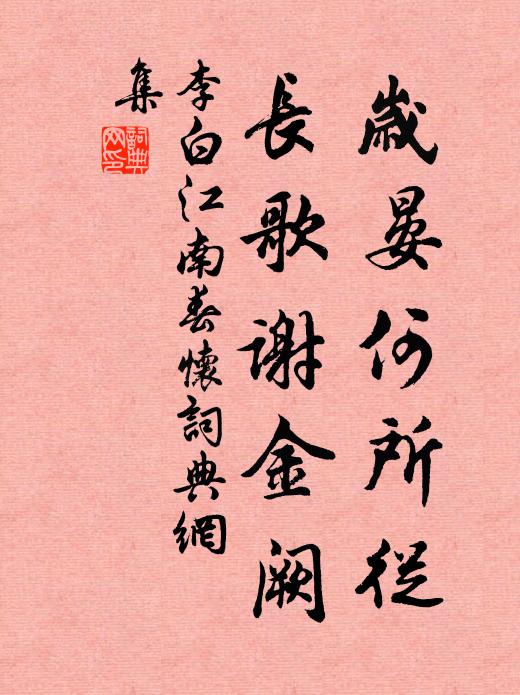 歲晏何所從
長歌謝金闕
李白江南春懷詞典網
集
詞典
网印